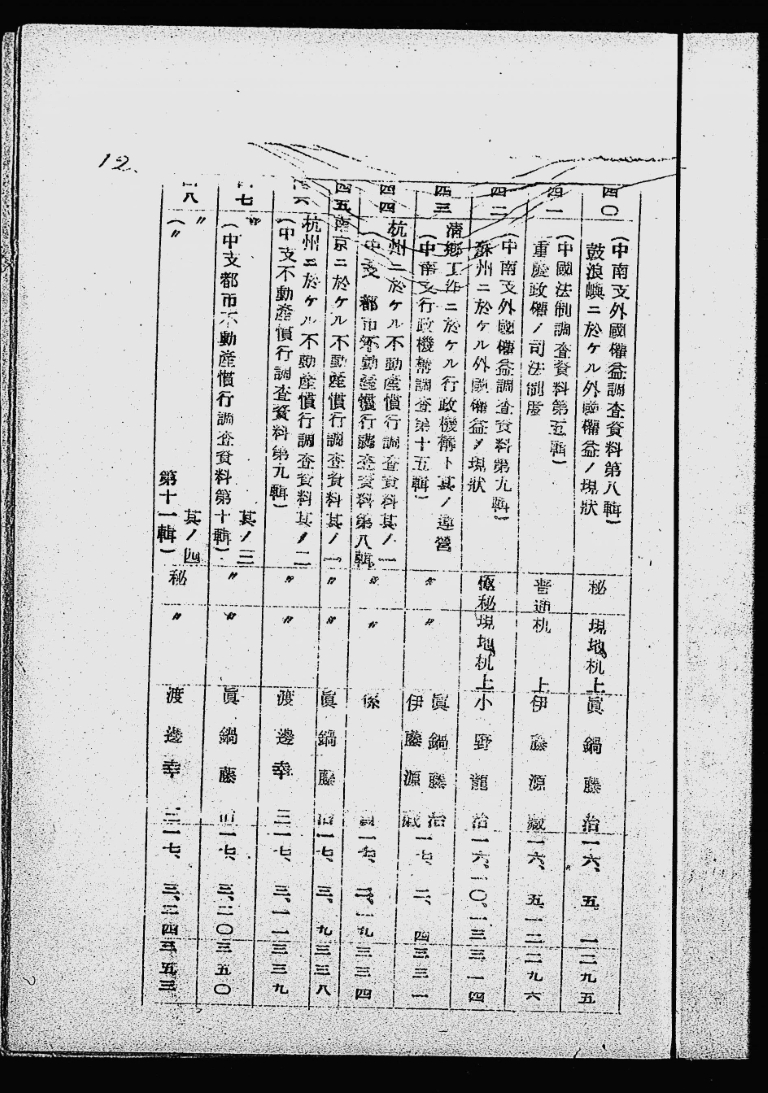 12.
四〇
(中南支外國權益調査資料第八輯)
鼓浪嶼ニ於ケル外國權益ノ現狀
秘
現地机上
眞鍋藤治
一六、五、一
二九五
四一
(中國法制調査資料第五輯)
重慶政權ノ司法制度
普通
机上
伊藤源藏
一六、五、一二
二九六
四二
(中南支外國權益調査資料第九輯)
蘇州ニ於ケル外國權益ノ現狀
極秘
現地机上
小野龍治
一六、一〇、一三
三一四
四三
淸鄕工作ニ於ケル行政機構ト其ノ運營
(中南支行政機構調査第十五輯)
〃
〃
眞鍋藤治
伊藤源藏
一七、二、四
三三一
四四
杭州ニ於ケル不動產慣行調査資料其ノ一
(中支都市不動產慣行調査資料第八輯
〃
〃
係
一七、二、一九
三三四
四五
南京ニ於ケル不動產慣行調査資料其ノ一
〃
〃
眞鍋藤治
一七、三、九
三三八
四六
杭州ニ於ケル不動產慣行調査資料其ノ二
(中支不動產慣行調査資料第九輯)
〃
〃
渡邊幸三
一七、三、一一
三三九
四七
〃 其ノ三
(中支都市不動產慣行調査資料第十輯)
〃
〃
眞鍋藤治
一七、三、二〇
三五〇
四八
〃 其ノ四
(〃 第十一輯)
秘
〃
渡邊幸三
一七、三、二四
三五三